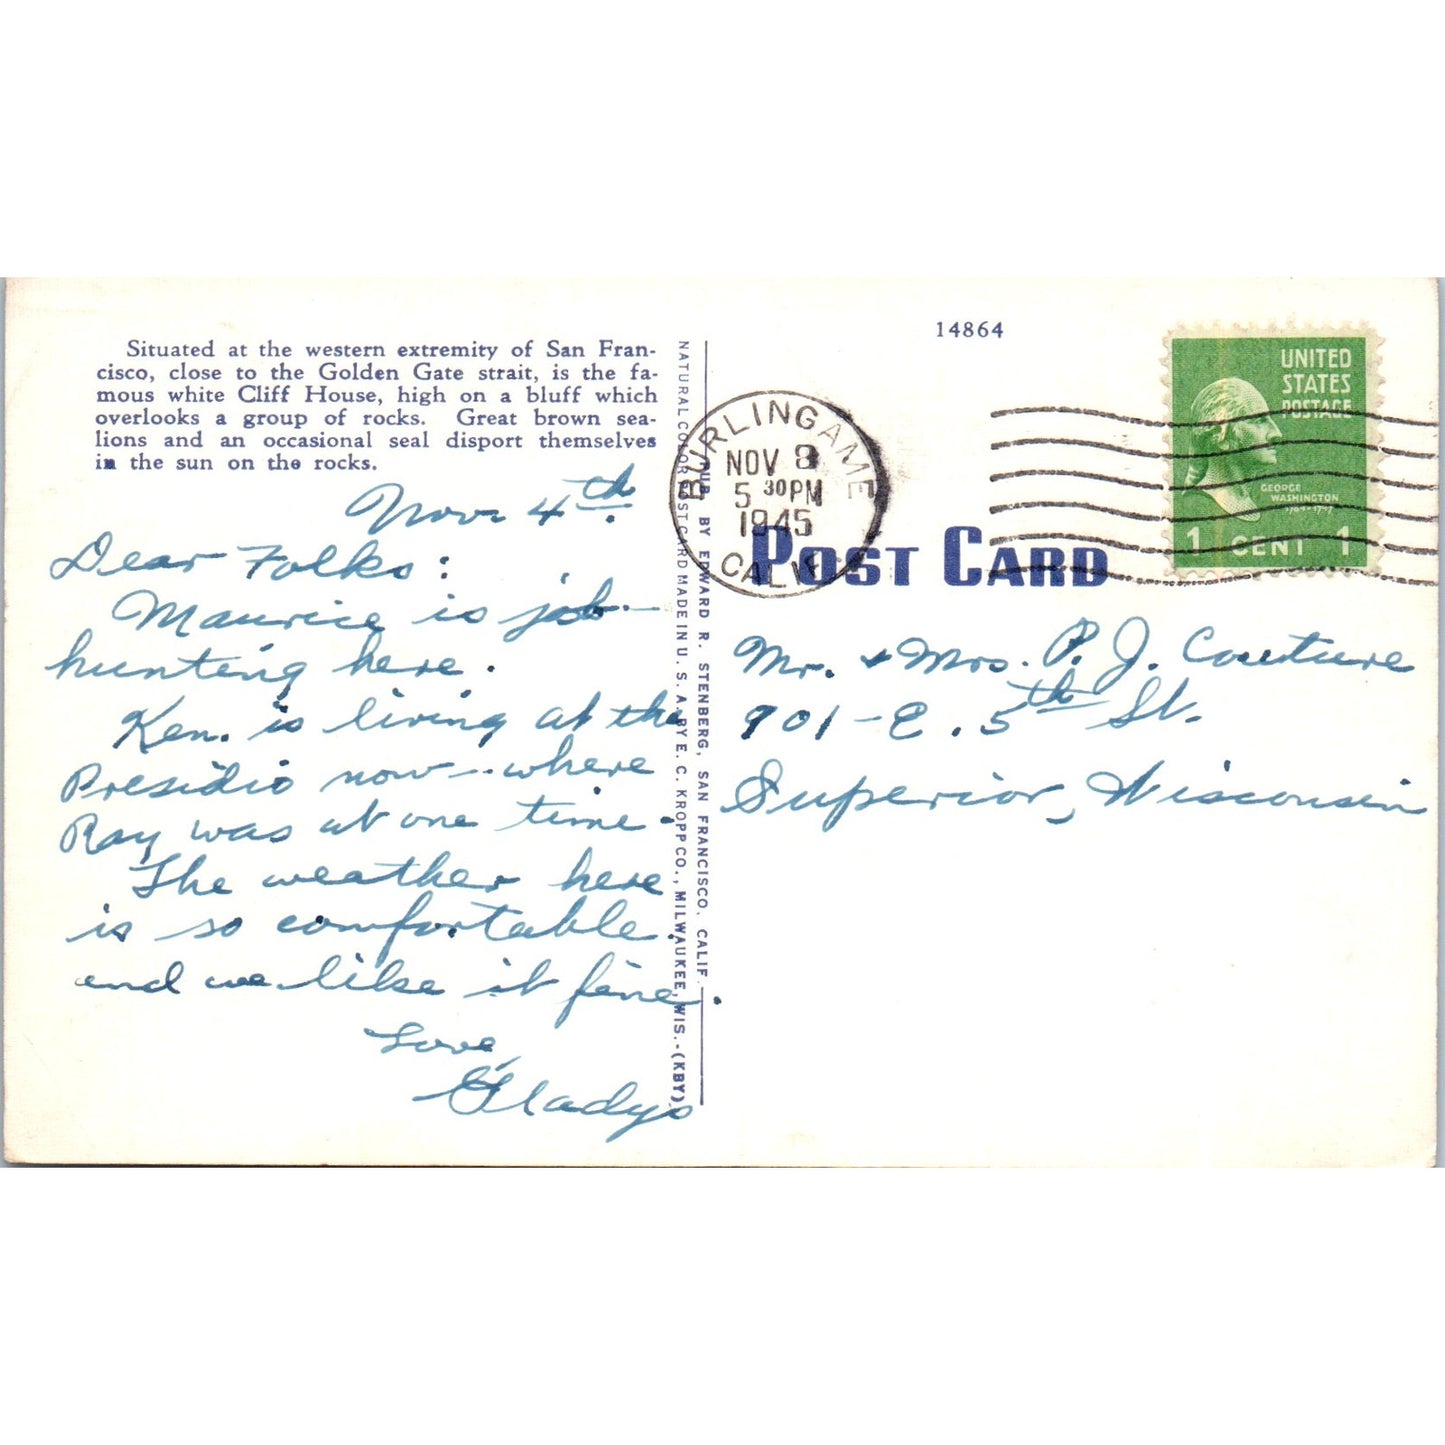 Situated at the western extremity of San Fran-
cisco, close to the Golden Gate strait, is the fa-
mous white Cliff House, high on a bluff which
overlooks a group of rocks. Great brown sea-
lions and an occasional seal disport themselves
in the sun on the rocks.
Nov. 4th.
Dear Folks:
Maurice is job-
hunting here.
Ken. is living at the
Presidio now - where
Ray was at one time.
The weather here
is so comfortable.
and we like it fine.
Love,
Gladys
NATURAL COLOR POST CARD MADE IN U. S. A. BY E. C. KROPP CO., MILWAUKEE, WIS.-(KBY)
PUB. BY EDWARD R. STENBERG, SAN FRANCISCO, CALIF.
14864
BURLINGAME
NOV 8
5 30 PM
1945
CALIF.
POST CARD
UNITED
STATES
POSTAGE
GEORGE
WASHINGTON
1 CENT 1
Mr. + Mrs. P. J. Couture
901 - E. 5th St.
Superior, Wisconsin